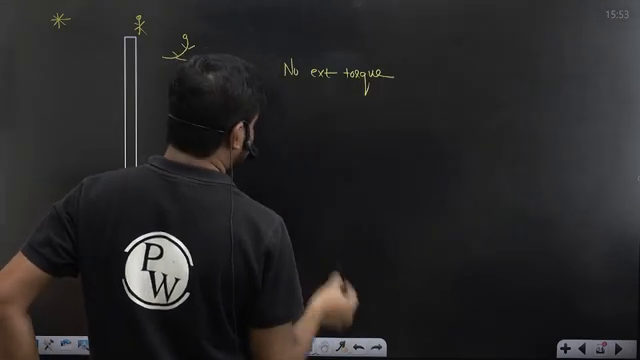 15:53
No ext torque
PW